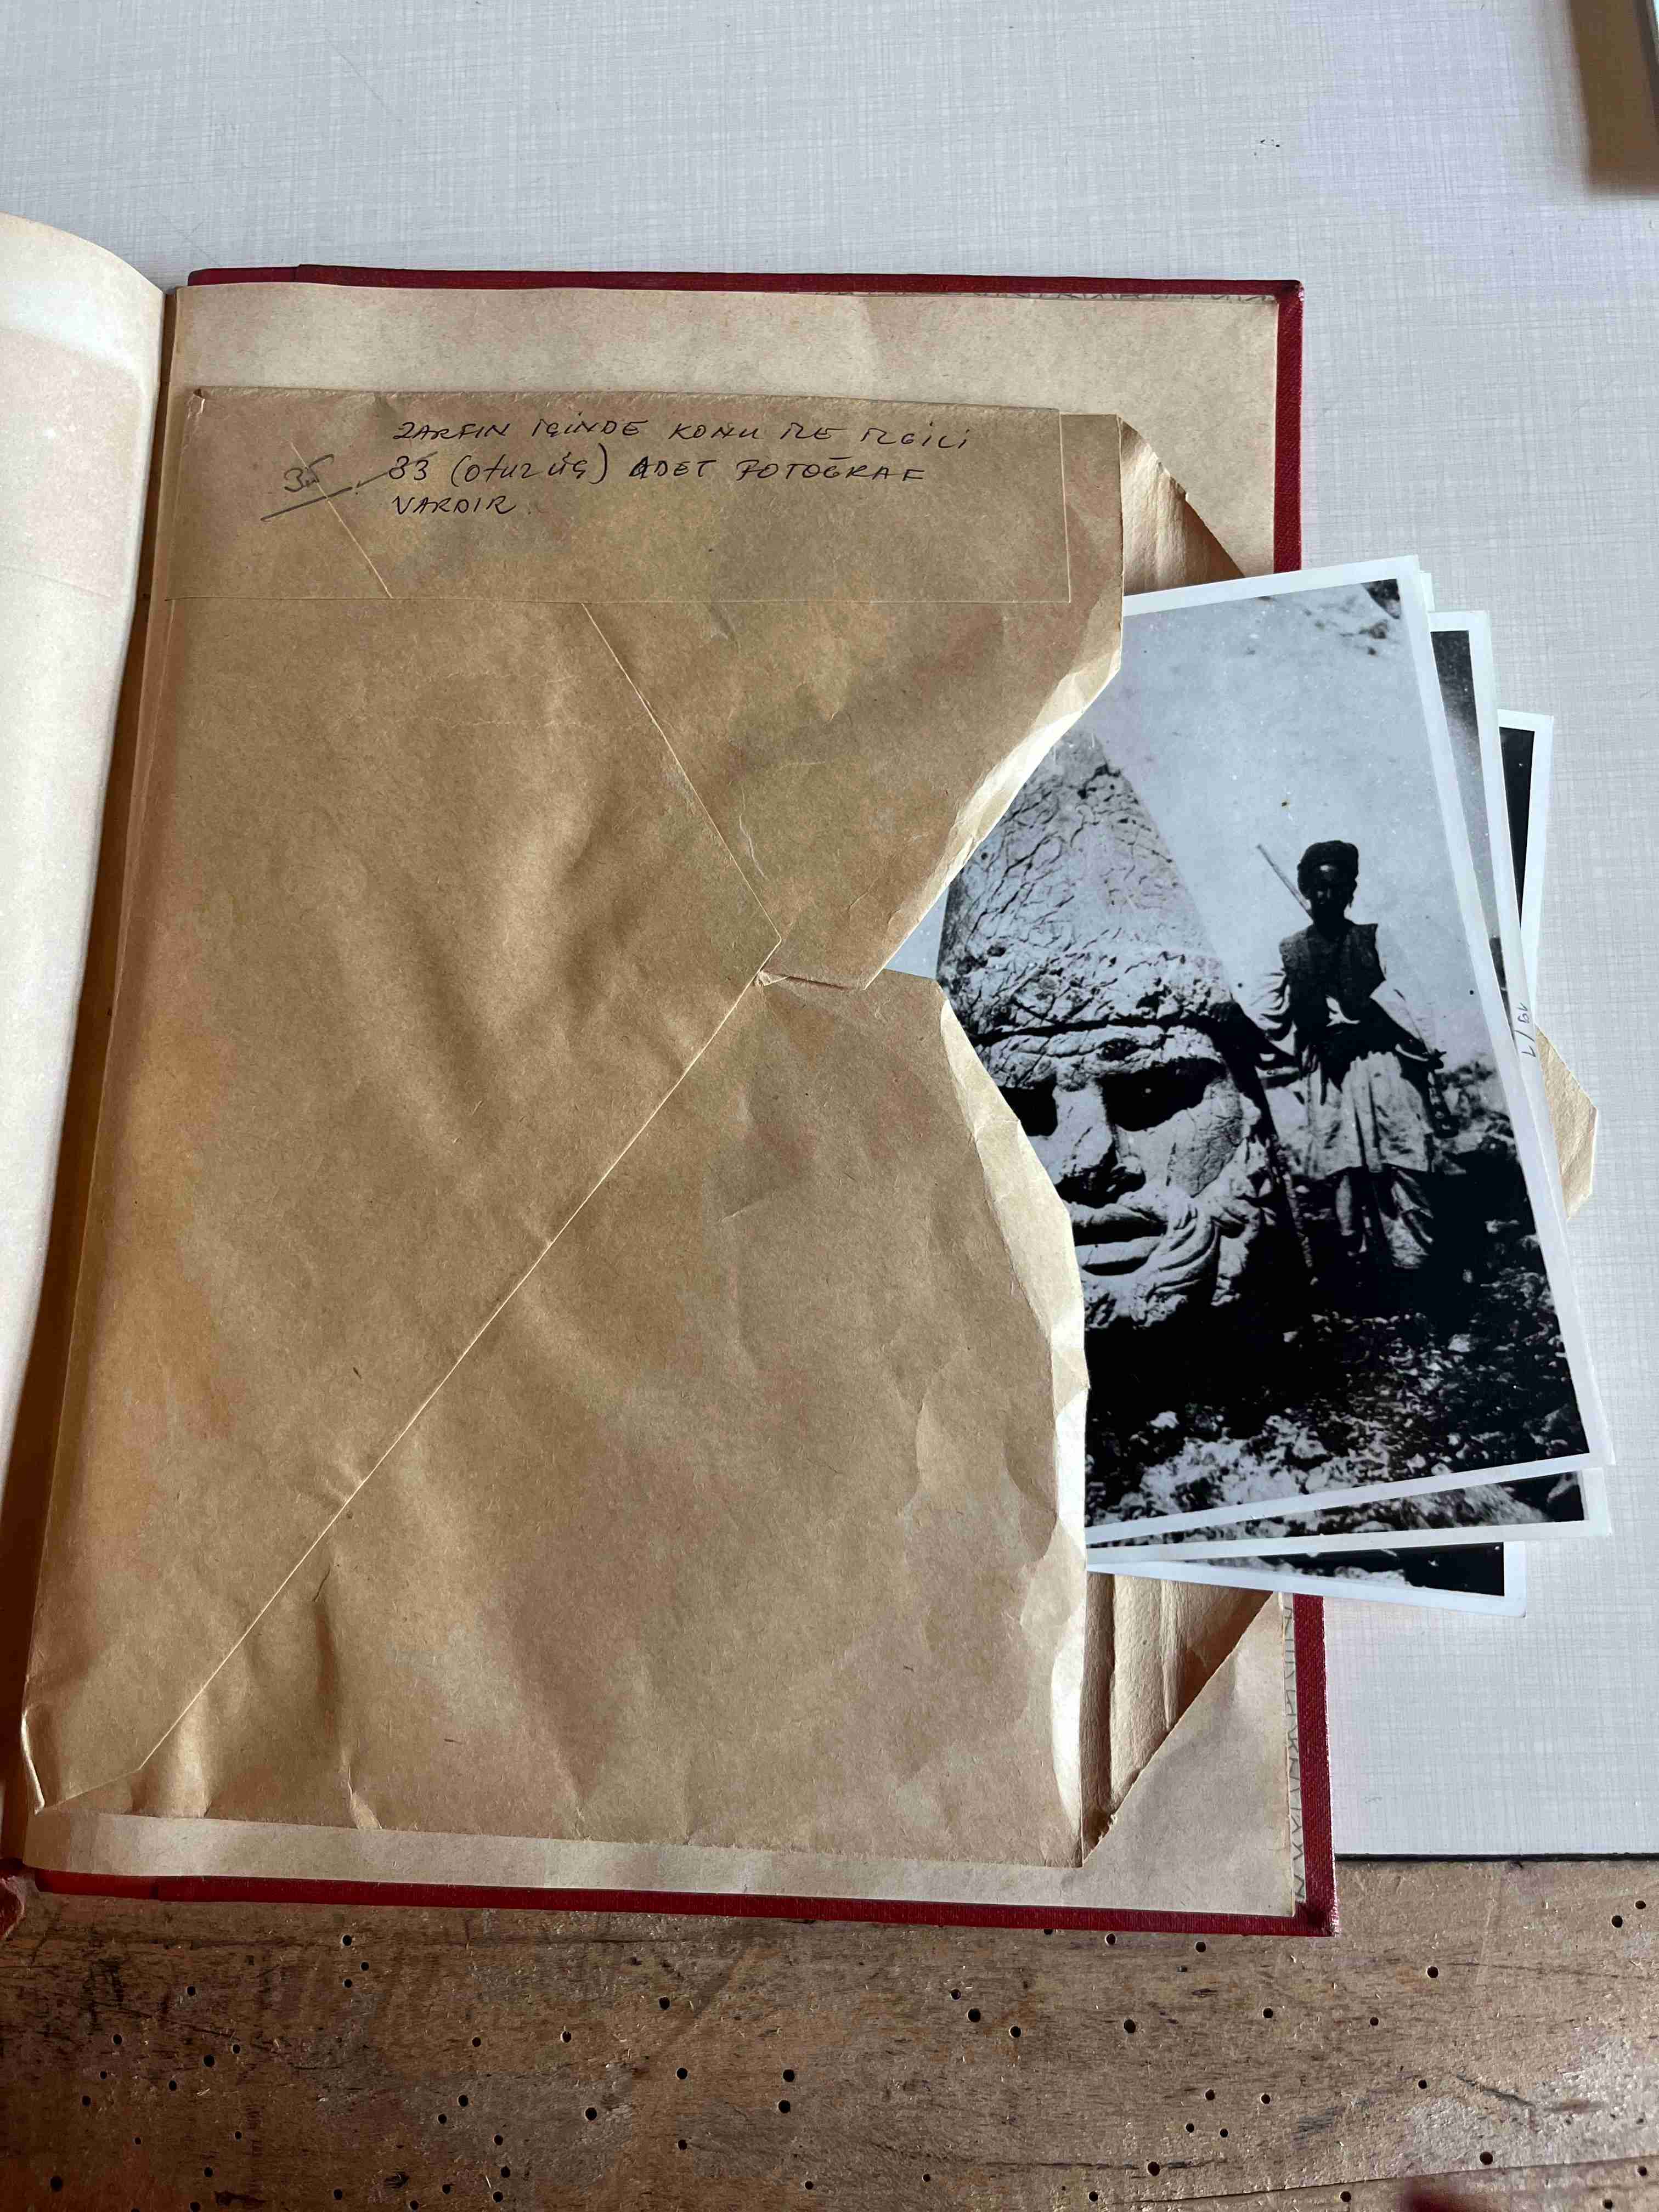 ZARFIN İÇİNDE KONU İLE İLGİLİ
35 33 (otuz üç) ADET FOTOĞRAF
VARDIR.
19/7